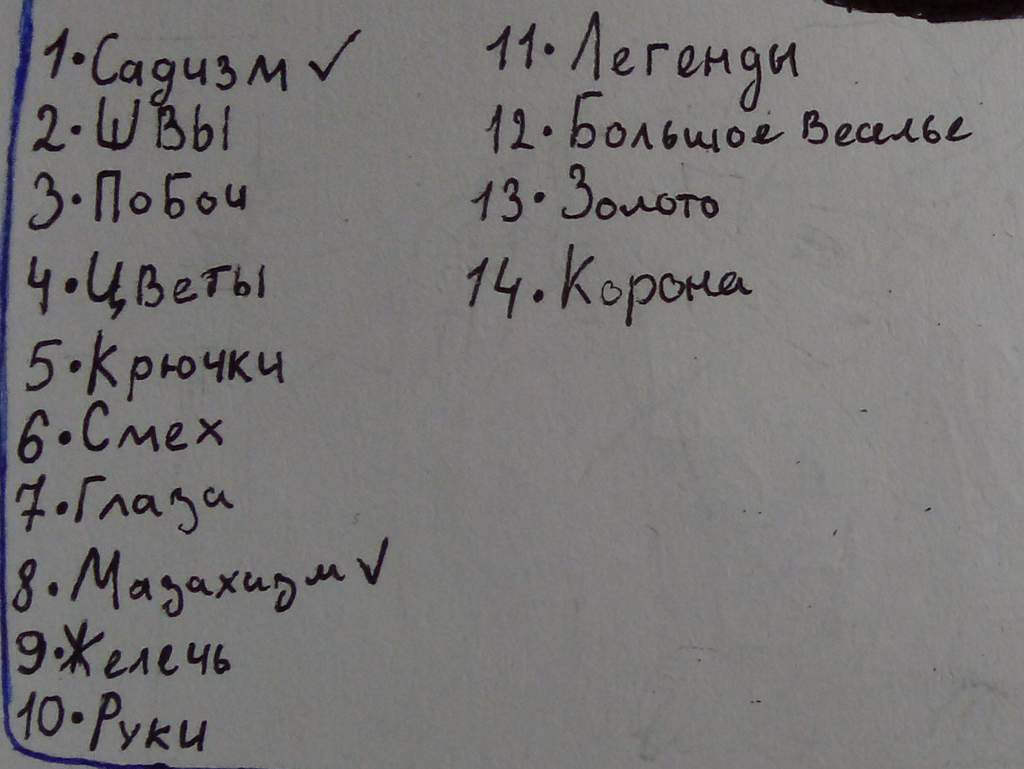 1·Садизм ✓
2·Швы
3·Побои
4·Цветы
5·Крючки
6·Смех
7·Глаза
8·Мазахизм ✓
9·Желечь
10·Руки
11·Легенды
12·Большое Веселье
13·Золото
14·Корона